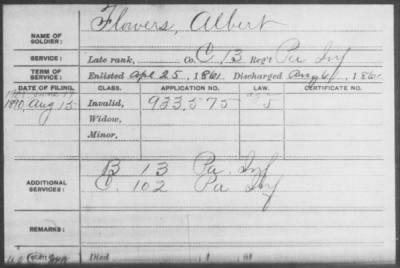 Flowers, Albert
NAME OF SOLDIER:
SERVICE: Late rank, Co. C, 13 Reg't Pa Inf
TERM OF SERVICE: Enlisted Apr 25, 1861. Discharged Aug 6, 1861
DATE OF FILING. CLASS. APPLICATION NO. LAW. CERTIFICATE NO.
1890, Aug 15 Invalid, 933,575
Widow,
Minor,
B 13 Pa. Inf
ADDITIONAL SERVICES: C. 102 Pa Inf
REMARKS:
Died , 1 , at